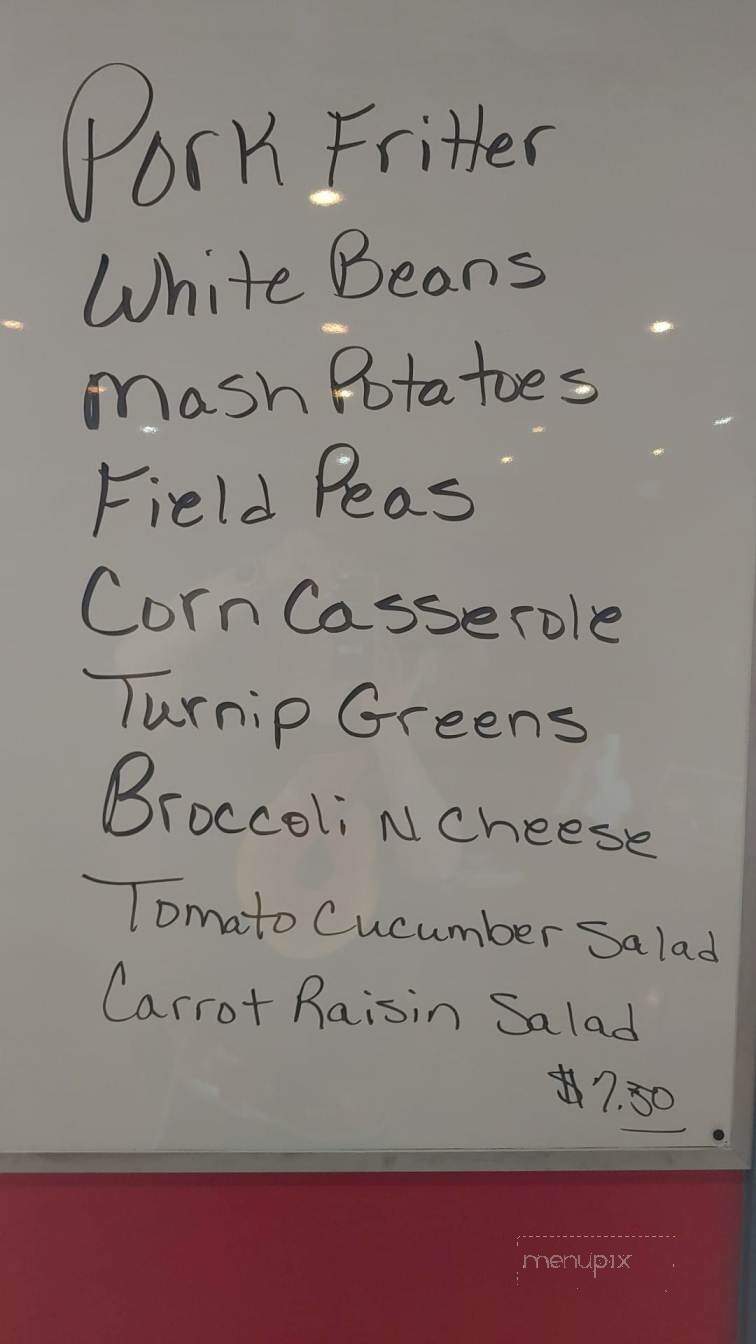 Pork Fritter
White Beans
Mash Potatoes
Field Peas
Corn Casserole
Turnip Greens
Broccoli N Cheese
Tomato Cucumber Salad
Carrot Raisin Salad
$7.50
menupix